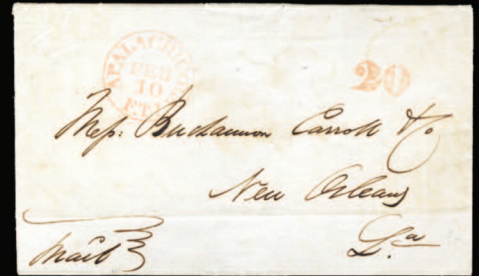 APALACHICOLA
FEB
10
FL.T.
20
Mess: Buchannon Carroll & Co
New Orleans
La
Mail